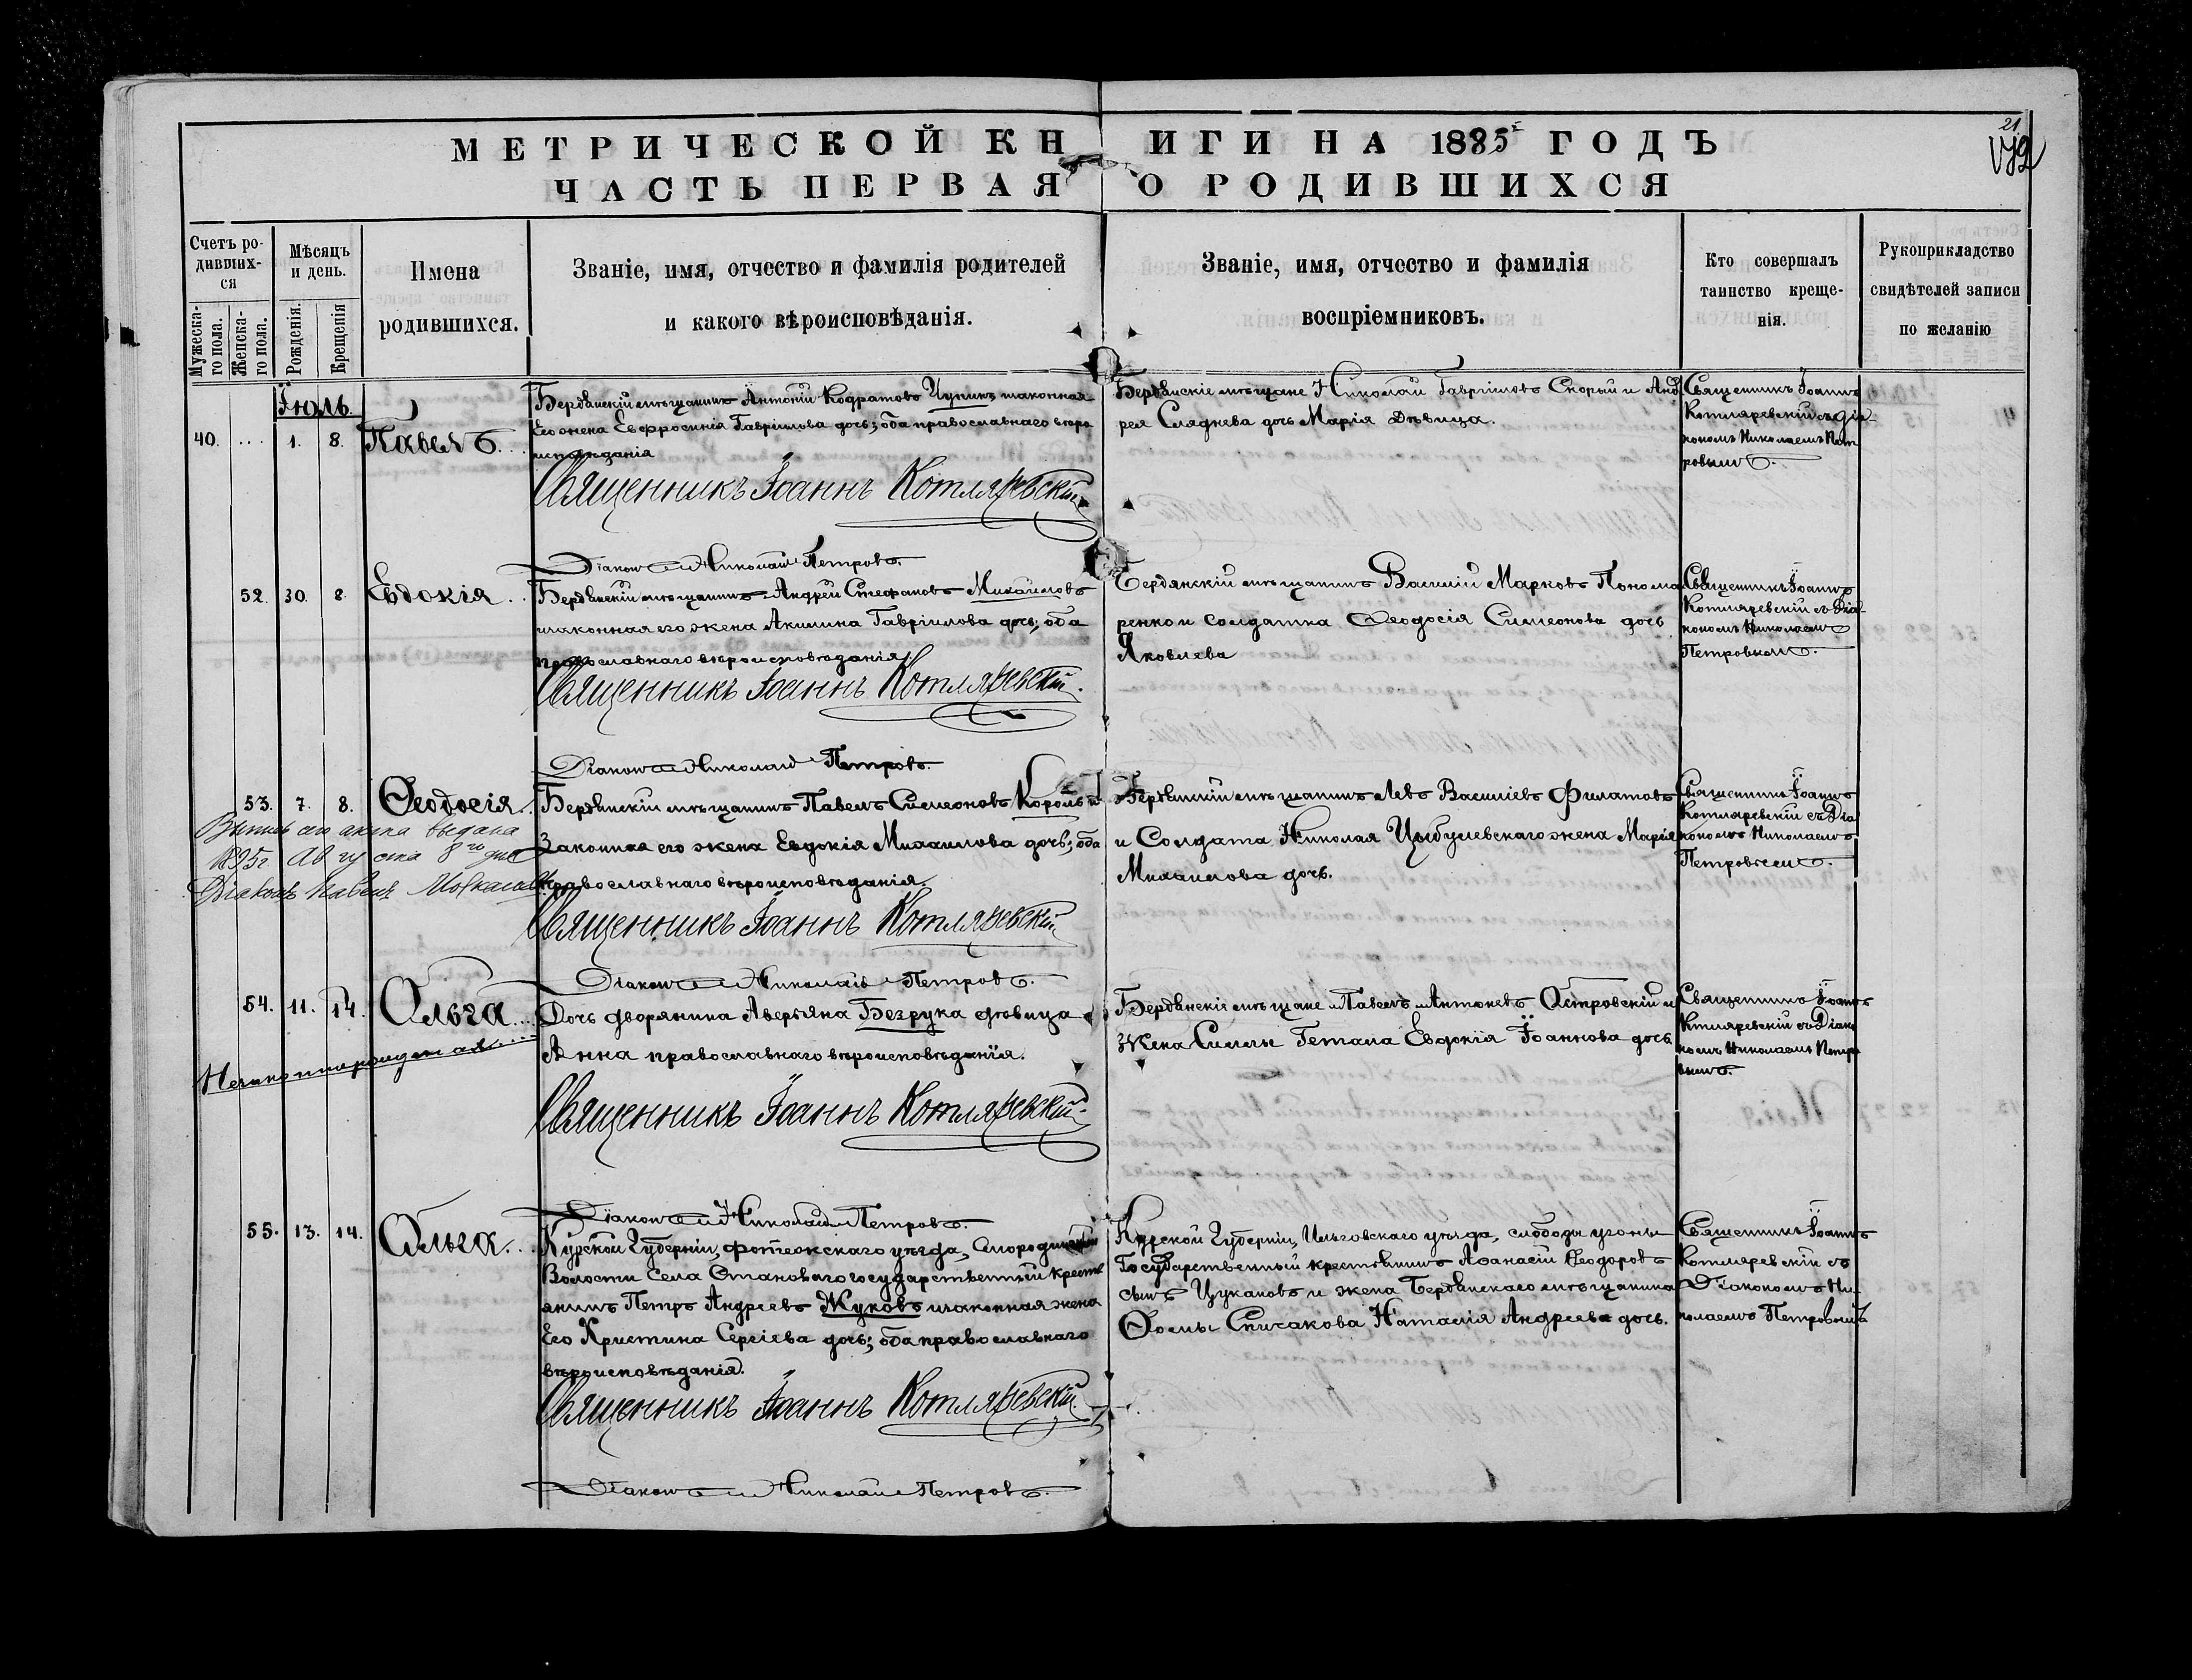 МЕТРИЧЕСКОЙ КНИГИ НА 1885 ГОДЪ
21
ЧАСТЬ ПЕРВАЯ О РОДИВШИХСЯ
Счетъ ро-
дивших-
ся
Мужеска-
го пола.
Женска-
го пола.
Мѣсяцъ
и день.
Рожденія.
Крещенія
Имена
родившихся.
Званіе, имя, отчество и фамилія родителей
и какого вѣроисповѣданія.
Званіе, имя, отчество и фамилія
воспріемниковъ.
Кто совершалъ
таинство креще-
нія.
Рукоприкладство
свидѣтелей записи
по желанію
Іюль.
40. ... 1. 8. Павелъ...
Бердянскій мѣщанинъ Антоній Кодратовъ законная
Его жена Евфросинія Гавріилова дочь; оба православнаго вѣро
исповѣданія
Священникъ Іоаннъ Котляревскій
Діаконъ Николай Петровъ.
Бердянскіе мѣщане Николай Гавріиловъ Скорый и Анд
рея Сляднева дочь Марія дѣвица.
Священникъ Іоаннъ
Котляревскій съ Діа-
кономъ Николаемъ Пет
ровымъ.
52. 30. 8. Евдокія..
Бердянскій мѣщанинъ Андрей Стефановъ Михайловъ
и законная его жена Акилина Гавріилова дочь; оба
православнаго вѣроисповѣданія
Священникъ Іоаннъ Котляревскій.
Діаконъ Николай Петровъ.
Бердянскій мѣщанинъ Василій Марковъ Понома
ренко и солдатка Ѳеодосія Симеонова дочь
Яковлева
Священникъ Іоаннъ
Котляревскій съ Діа-
кономъ Николаемъ
Петровымъ.
53. 7. 8. Ѳеодосія.
Выпись сего акта выдана
1895г. Августа 8го дня
Діаконъ Павелъ
Бердянскій мѣщанинъ Павелъ Симеоновъ Король и
Законная его жена Евдокія Михаилова дочь; оба
православнаго вѣроисповѣданія.
Священникъ Іоаннъ Котляревскій
Діаконъ Николай Петровъ.
Бердянскій мѣщанинъ Левъ Васильевъ Филатовъ
и Солдата Николая Цыбулевскаго жена Марія
Михаилова дочь.
Священникъ Іоаннъ
Котляревскій съ Діа
кономъ Николаемъ
Петровымъ.
54. 11. 14. Ольга...
Незаконнорожденная....
Дочь дворянина Аверьяна Безрука дѣвица
Анна православнаго вѣроисповѣданія.
Священникъ Іоаннъ Котляревскій
Діаконъ Николай Петровъ.
Бердянскіе мѣщане Павелъ Антоневъ Островскій и
жена Силы Гетала Евдокія Іоаннова дочь
Священникъ Іоаннъ
Котляревскій съ Діако
номъ Николаемъ Петро
вымъ.
55. 13. 14. Ольга..
Курской Губерніи, Фатежскаго уѣзда,
Волости Села Становаго государственный кресть
янинъ Петръ Андреевъ Жуковъ и законная жена
Его Христина Сергіева дочь; оба православнаго
вѣроисповѣданія.
Священникъ Іоаннъ Котляревскій
Діаконъ Николай Петровъ.
Курской Губерніи, Льговскаго уѣзда, слободы Угоны
Государственный крестьянинъ Аѳанасій Ѳеодоровъ
сынъ Цукановъ и жена Бердянскаго мѣщанина
Ѳомы Спичакова Наталія Андреева дочь.
Священникъ Іоаннъ
Котляревскій съ
Діакономъ Ни-
колаемъ Петровымъ